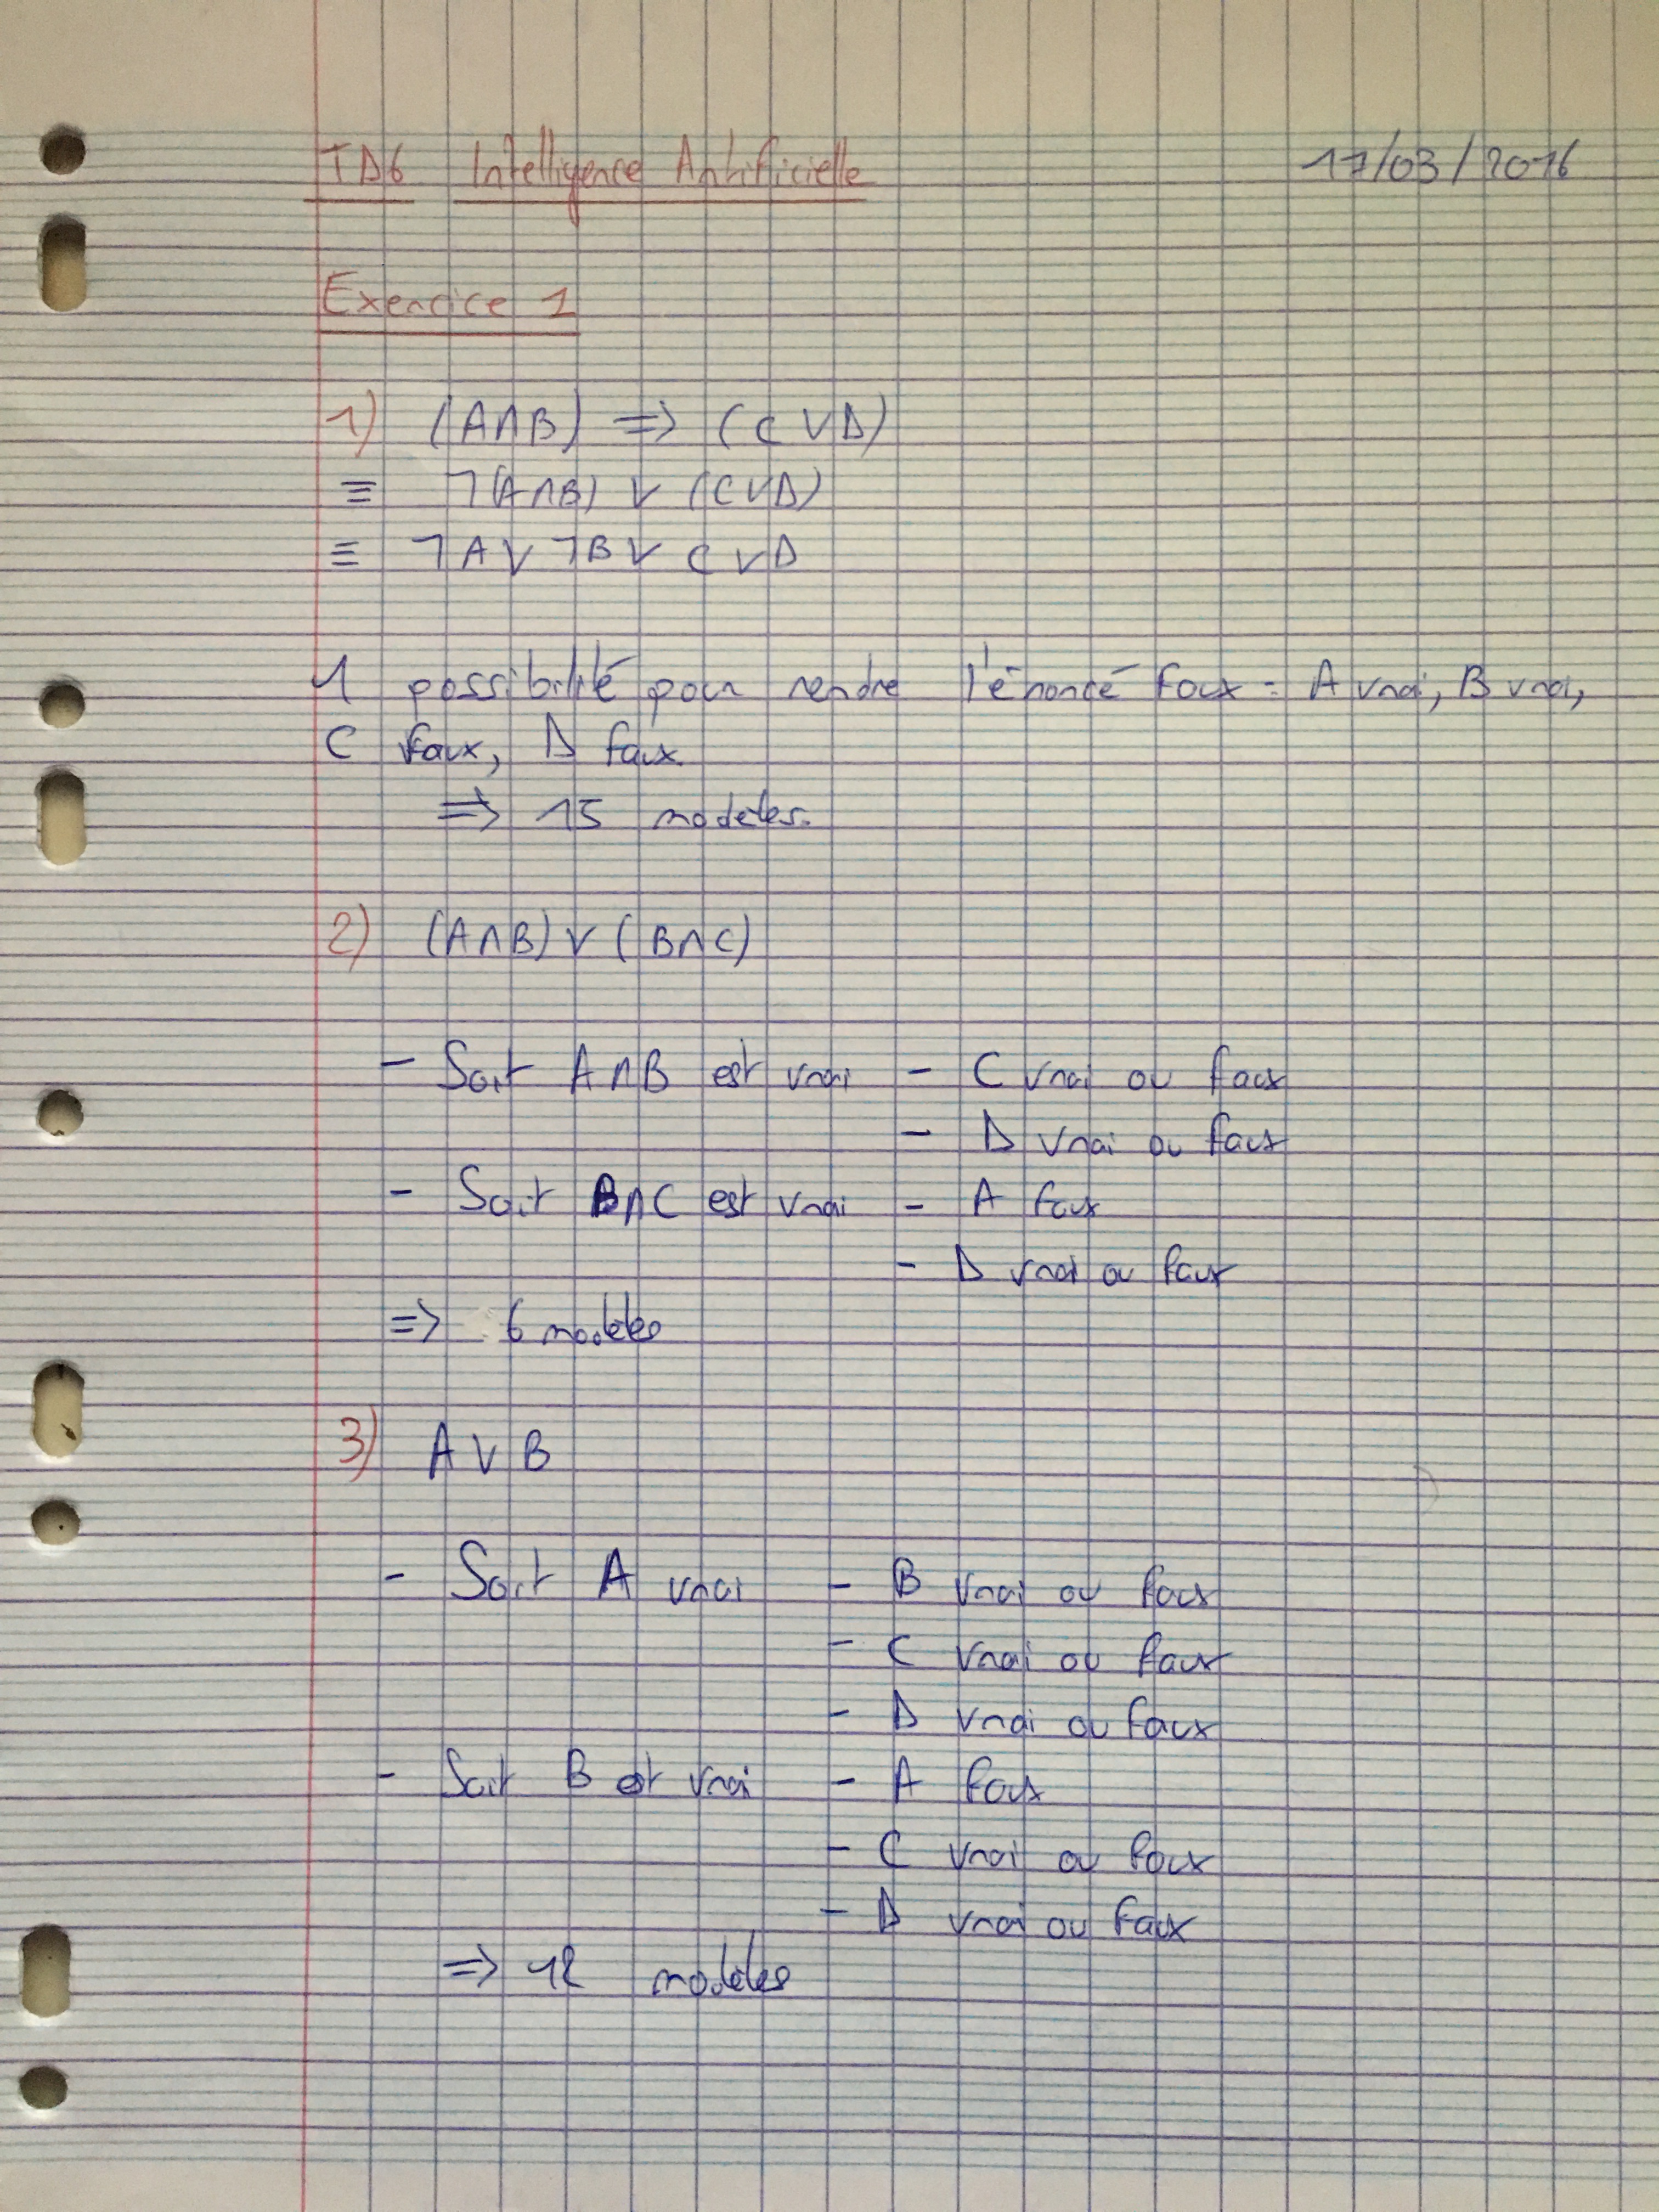 TD6 Intelligence Artificielle 17/03/2016
Exercice 1
1) (A∧B) => (C∨D)
≡ ¬(A∧B) ∨ (C∨D)
≡ ¬A∨¬B∨C∨D
1 possibilité pour rendre l'énoncé faux = A vrai, B vrai,
C faux, D faux.
=> 15 modèles.
2) (A∧B)∨(B∧C)
- Soit A∧B est vrai - C vrai ou faux
- D vrai ou faux
- Soit B∧C est vrai - A faux
- D vrai ou faux
=> 6 modèles
3) A∨B
- Soit A vrai - B vrai ou faux
- C vrai ou faux
- D vrai ou faux
- Soit B est vrai - A faux
- C vrai ou faux
- D vrai ou faux
=> 12 modèles